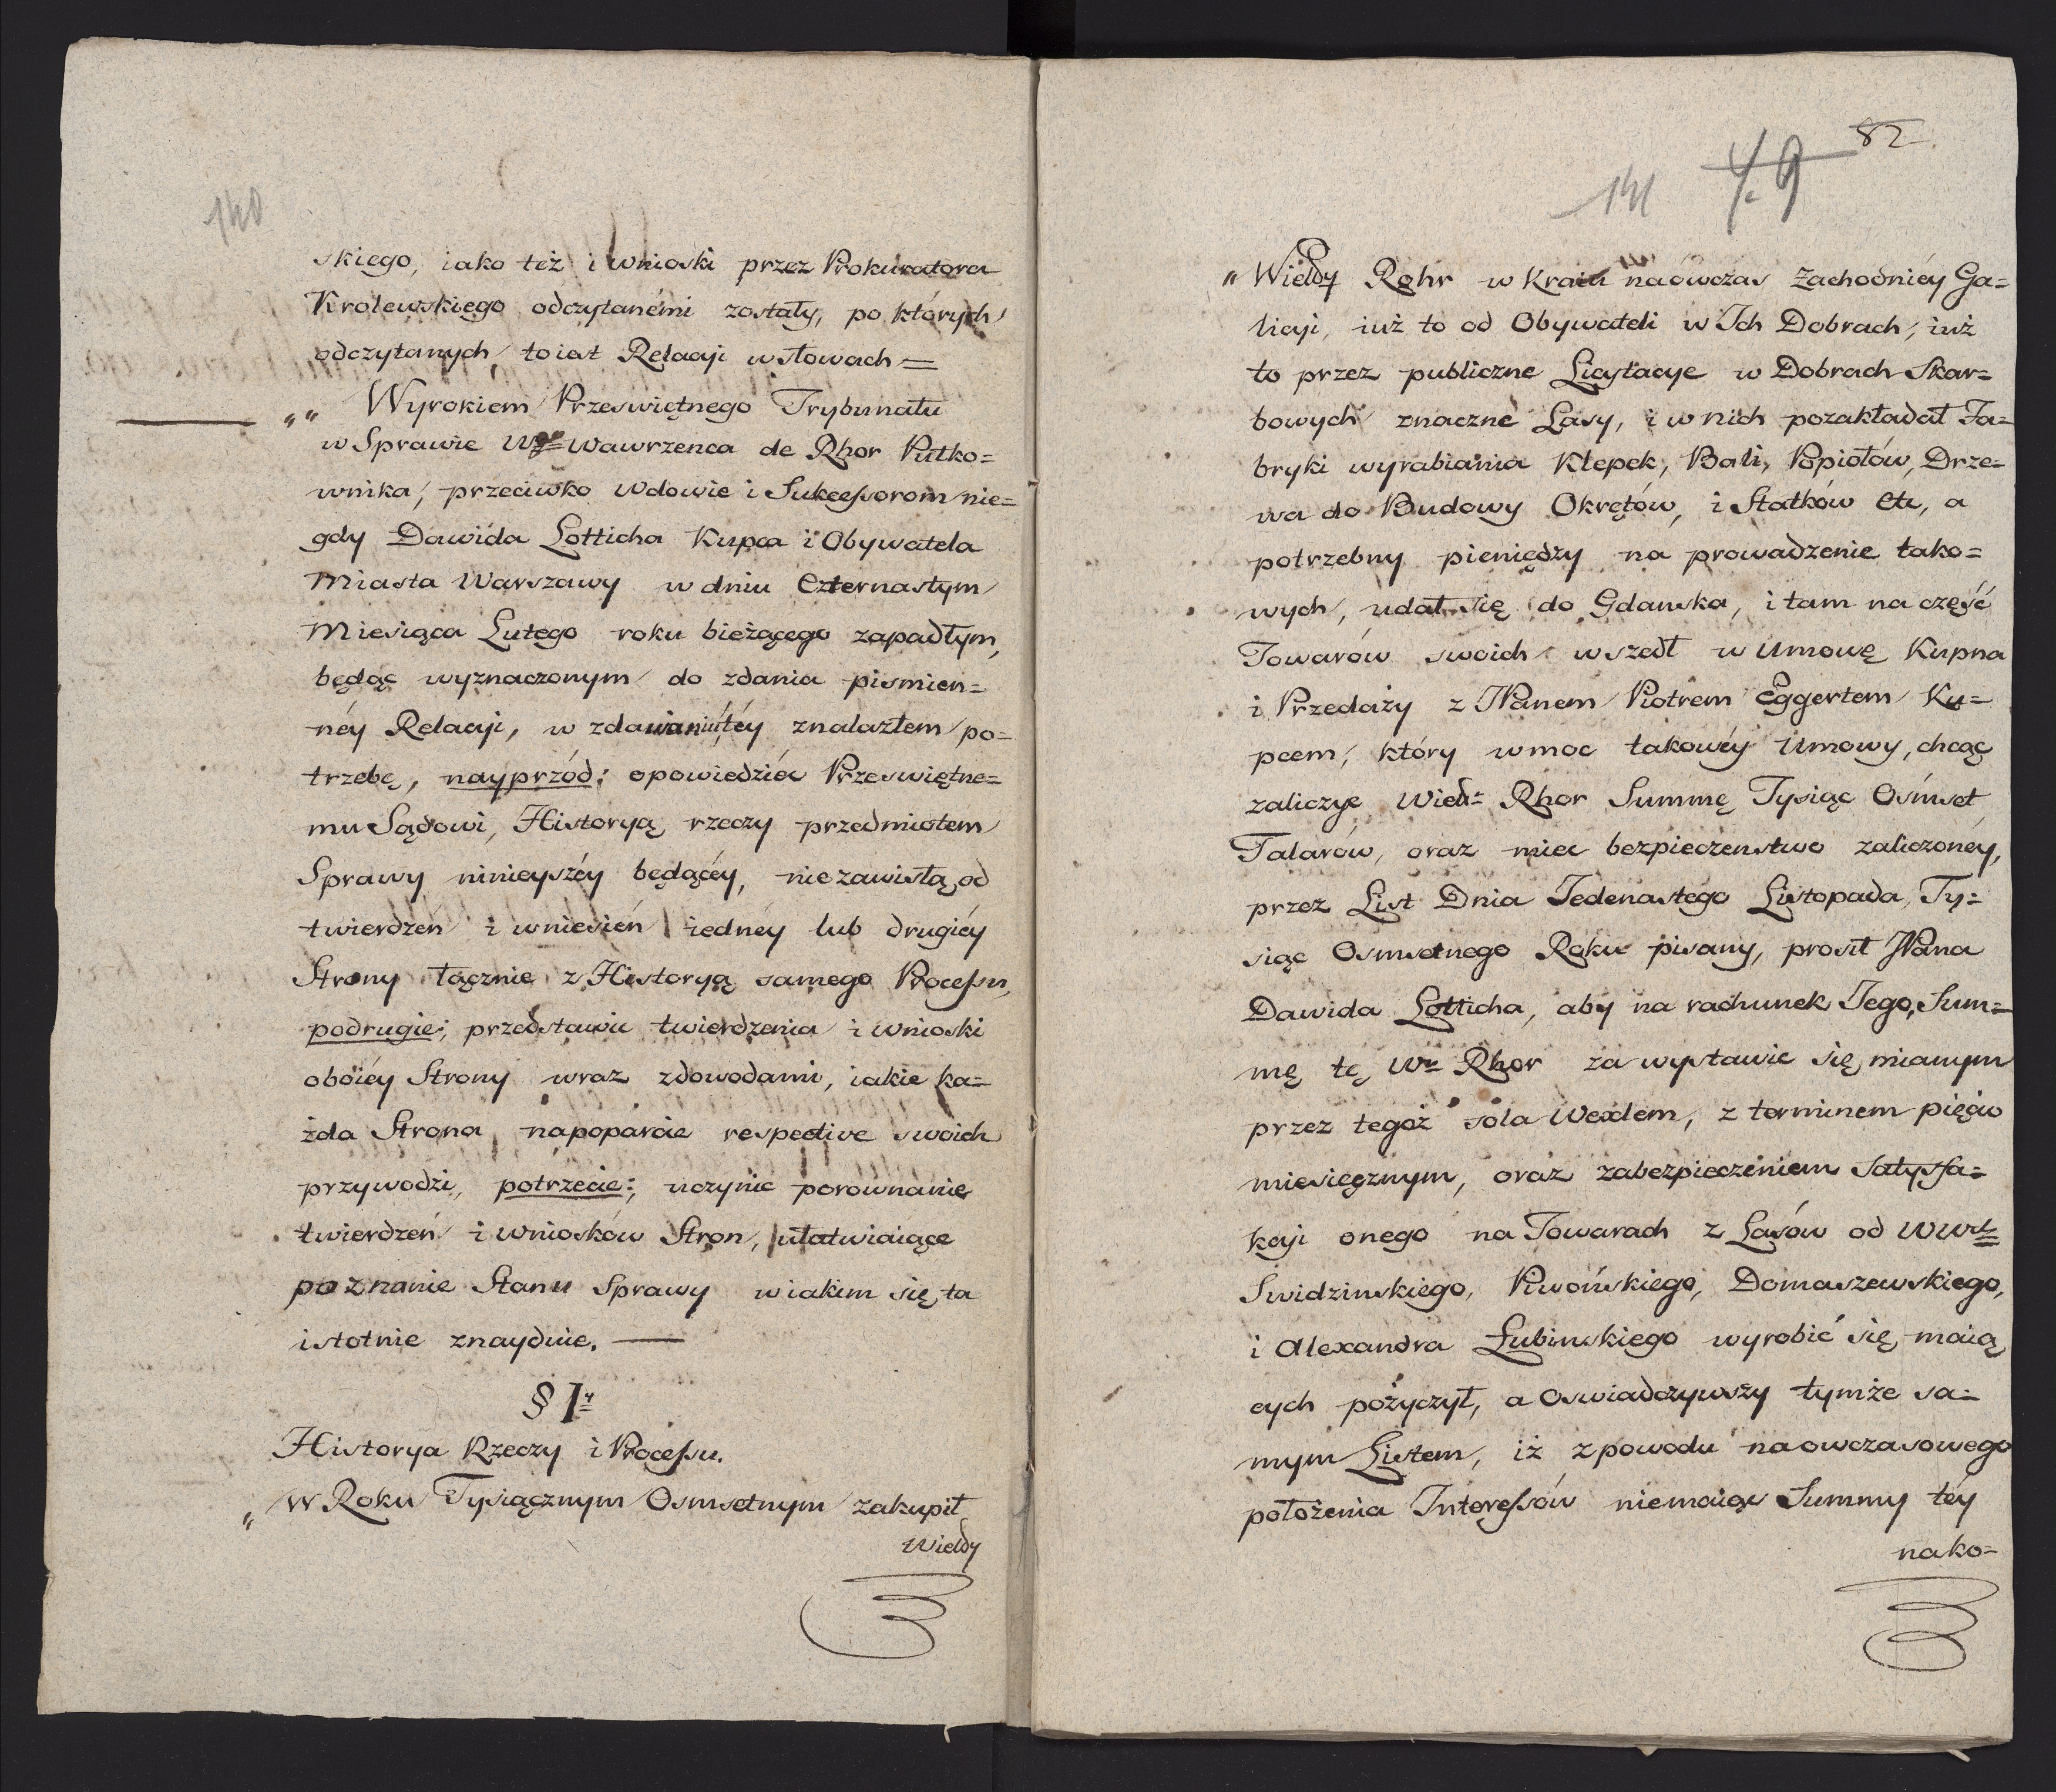 140
skiego, iako też i wnioski przez Prokuratora
Krolewskiego odczytanémi zostały, po których
odczytanych, toiest Relacyi w słowach =
„ " Wyrokiem Przeswiętnego Trybunału
w Sprawie Wgo Wawrzenca de Rhor Pułko=
wnika, przeciwko Wdowie i Sukcessorom nie=
gdy Dawida Lotticha Kupca i Obywatela
Miasta Warszawy w dniu Czternastym
Miesiąca Lutego roku bieżącego zapadłym,
będąc wyznaczonym do zdania pismien=
néy Relacyi, w zdawaniu téy znalazłem po=
trzebę, nayprzód: opowiedzieć Przeswiętne=
mu Sądowi, Historyą rzeczy przedmiotem
Sprawy ninieyszéy będącéy, niezawisłą od
twierdzeń i wniesień iednéy lub drugiéy
Strony łącznie z Historyą samego Processu,
podrugie; przedstawić twierdzenia i wnioski
obóiéy Strony wraz zdowodami, iakie ka=
żda Strona napoparcie respective swoich
przywodzi, potrzecie:, uczynić porownanie
twierdzeń i wniosków Stron, ułatwiaiące
poznanie Stanu Sprawy w iakim się ta
istotnie znayduie. —
§ Iy
Historya Rzeczy i Processu.
„ W Roku Tysiącznym Osmsetnym zakupił
Wieldy
82
141 49
" Wieldy Rohr w Kraiu naówczas Zachodniéy Ga=
licyi, iuż to od Obywateli w Ich Dobrach, iuż
to przez publiczne Licytacye w Dobrach Skar=
bowych znaczne Lasy, i w nich pozakładał Fa=
bryki wyrabiania Klepek, Bali, Popiołów, Drze=
wa do Budowy Okrętów, i Statków etc, a
potrzebny pieniędzy na prowadzenie tako=
wych, udał się do Gdanska, i tam na część
Towarów swoich wszedł w Umowę Kupna
i Przedaży z JPanem Piotrem Eggertem Ku=
pcem, który w moc takowéy Umowy, chcąc
zaliczyć Wield= Rhor Summę Tysiąc Osmset
Talarów, oraz mieć bezpieczenstwo zaliczonéy,
przez List Dnia Jedenastego Listopada, Ty=
siąc Osmsetnego Roku pisany, prosił JPana
Dawida Lotticha, aby na rachunek Jego, Sum=
mę tę Wu Rhor za wystawić się mianym
przez tegoż sola Wexlem, z terminem pięcio
miesięcznym, oraz zabezpieczeniem Satysfa=
kcyi onego na Towarach z Lasów od WWch
Swidzinskiego, Piwońskiego, Domaszewskiego,
i Alexandra Łubinskiego wyrobić się maią
cych pożyczył, a Oswiadczywszy tymże sa=
mym Listem, iż z powodu naowczasowego
położenia Interessów niemaiąc Summy téy
nako=